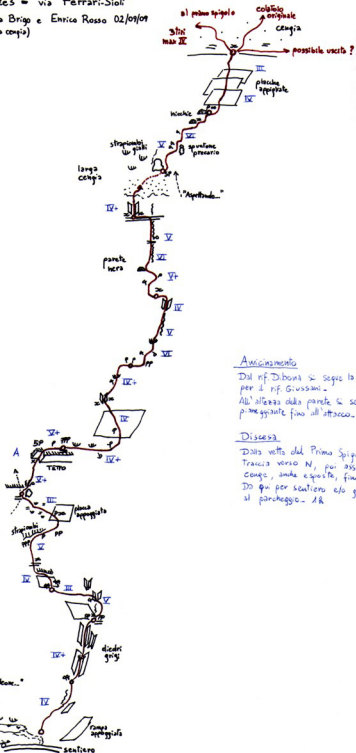 via Ferrari-Sioli
Brigo e Enrico Rosso 02/09/09
cengia)
al primo spigolo
colatoio
originale
cengia
3 tiri
max IV
possibile uscita ?
III
placche
appigliate
IV
nicchie
V
strapiombi
gialli
V
spuntone
precario
larga
cengia
"Aspettando..."
IV+
V
VI
parete
nera
V+
IV
V
VI
IV+
IV
V+
A
5P
PPP
TETTO
IV+
III
placca
appoggiata
strapiombi
PPP
PP
V
IV
III
V
IV+
diedri
grigi
IV
rampa
appoggiata
sentiero
Avvicinamento
Dal rif. Dibona si segue la
per il rif. Giussani.
All'altezza della parete si
pianeggiante fino all'attacco.
Discesa
Dalla vetta del Primo Spig
Traccia verso N, poi
cenge, anche esposte,
Da qui per sentiero e/o
al parcheggio. 1h